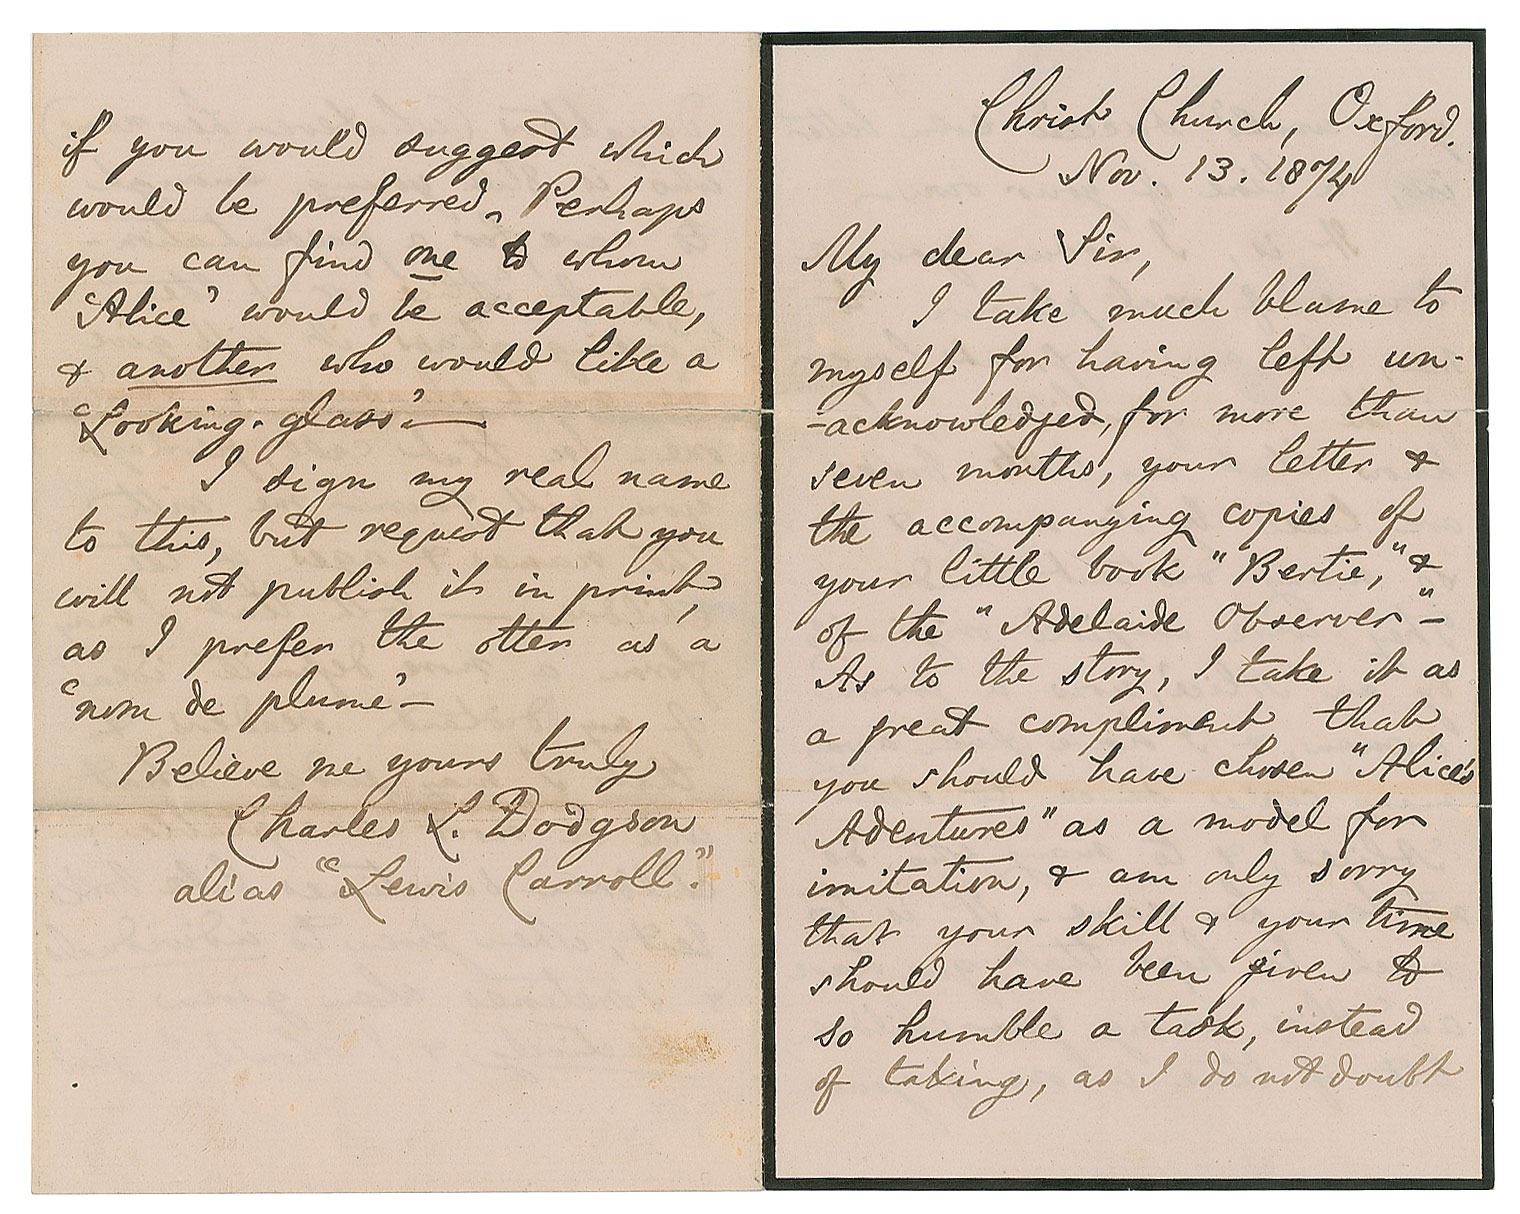 Christ Church, Oxford.
Nov. 13. 1874
My dear Sir,
I take much blame to
myself for having left un-
-acknowledged, for more than
seven months, your letter &
the accompanying copies of
your little book "Bertie," &
of the "Adelaide Observer" –
As to the story, I take it as
a great compliment that
you should have chosen "Alice's
Adentures" as a model for
imitation, & am only sorry
that your skill & your time
should have been given to
so humble a task, instead
of taking, as I do not doubt
if you would suggest which
would be preferred. Perhaps
you can find one to whom
'Alice' would be acceptable,
& another who would like a
'Looking-glass' –
I sign my real name
to this, but request that you
will not publish it in print,
as I prefer the other as a
'nom de plume' –
Believe me yours truly
Charles L. Dodgson
alias "Lewis Carroll."